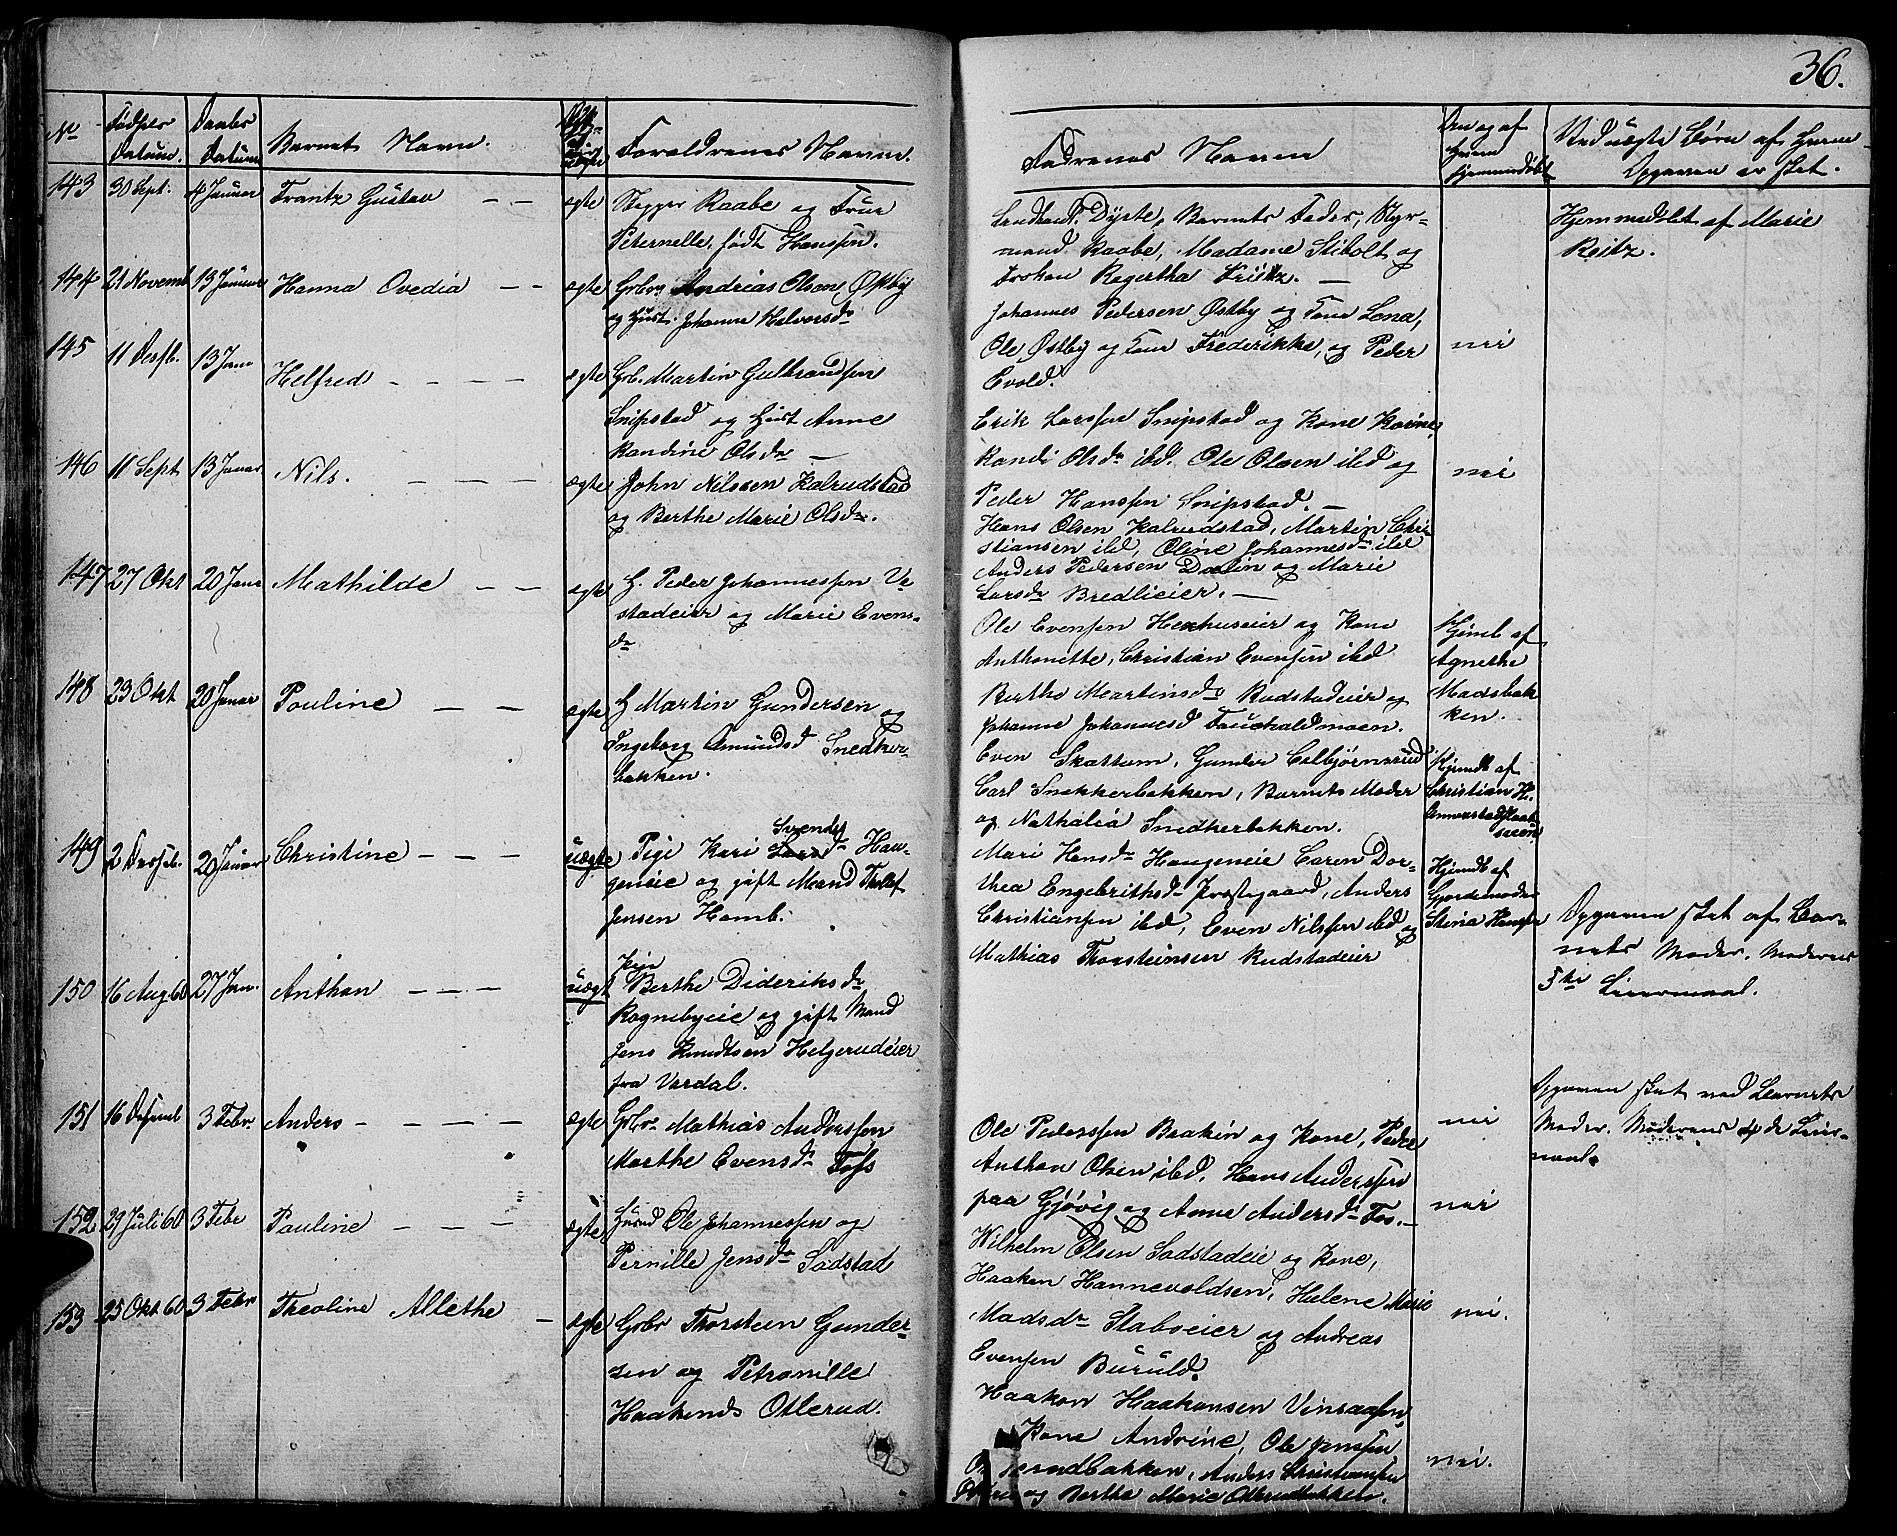 36.
No
Fødsels
Datum.
Daabs
Datum
Barnets Navn.
Ægte
el.
uægte
Forældrenes Navne.
Faddrenes Navne
Om og af
hvem
hjemmedøbt
Ved uægte Børn af hvem
Opgaven er sket.
143
30 Sept.
4 Januar
Frantz Gustav
ægte
Raabe og Frue
Peternelle, født Hanssen.
Landhandl. Dyste, Barnets Fader, Styr-
mand Raabe, Madame Stibolt og
Frøken Regertha Fritz.
Hjemmedøbt af Marie
Reitz.
144
21 Novemb
13 Januar
Hanna Ovedia
ægte
Grbr. Andreas Olsen Østby
og Hust. Johanne Halversdr
Johannes Pedersen Østby og Kone Lena,
Ole Østby og Kone Frederikke, og Peder
Evold.
nei
145
11 Desb.
13 Janu
Helfred
ægte
Grb. Martin Gulbrandsen
Snipstad og Hust Anne
Randine Olsdr
Erik Larssen Snipstad og Kone Karine,
Randi Olsdr ibd. Ole Olsen ibd og
Peder Hanssen Snipstad.
nei
146
11 Sept
13 Januar
Nils.
ægte
John Nilssen Kalrudstad
og Berthe Marie Olsdr.
Hans Olsen Kalrudstad, Martin Chri-
stiansen ibd, Oline Johannesdr ibd
Anders Pedersen Dalin og Marie
Larsdr Bredlieier.
147
27 Okt
20 Janr
Mathilde
ægte
H. Peder Johannessen Ve-
stadeier og Marie Evens-
dr
Ole Evensen Hexhuseier og Kone
Anthonette, Christian Evensen ibd
Berthe Martinsdr Rudstadeier og
Johanne Johannesd Fauchaldmoen.
Hjemb af
Agnethe
Madsbak
ken.
148
23 Okt
20 Januar
Pouline
ægte
H Martin Gundersen og
Ingeborg Amundsd Snedker-
bakken.
Even Skattum, Gunder Eelbjørnsrud
Carl Snekkerbakken, Barnets Moder
og Nathalia Snedkerbakken.
Hjemdt af
Christian
149
2 Desb.
20 Januar
Christine
uægte
Svends
Pige Kari Larsdr Hau-
geneie og gift Mand Tollef
Jensen Homb.
Mari Hansdr Haugeneie Caren Dor-
thea Engebrithsdr Præstegaard, Anders
Christiansen ibd, Even Nilssen ibd og
Mathias Thorsteinsen Rudstadeier
Hjemdt af
Gjordemoder
Stina Hansen
Opgaven sket af Bar-
nets Moder. Moderens
3die Leiermaal.
150
16 Aug 60
27 Jan.
Anthon
uægt
Pige
Berthe Dideriksdr
Rognebyeie og gift Mand
Jens Knudtsen Helgerudeier
fra Vardal.
Opgaven sket ved Barnets
Moder. Moderens de Leier-
maal.
151
16 Desemb
3 Febr.
Anders
ægte
Grbr. Mathias Anderssen
Marthe Evensdr Foss
Ole Pederssen Braakin og Kone, Peder
Anthon Olsen ibd, Hans Anderssen
paa Gjøvig og Anne Andersdr Fos.
nei
nei
152
29 Juli 60
3 Febr
Pauline
ægte
Husmd Ole Johannessen og
Pernille Jensdr Sodstad
Wilhelm Olsen Sodstadeie og Kone,
Haaken Hannevoldsen, Helene Marie
Madsdr Staboeier og Andreas
Evensen Buruld.
nei.
153
25 Okt 60
3 Febr
Theoline Allethe
ægte
Grbr Thorsteen Gunder-
sen og Petronille
Haakends Otterud.
Haakon Haakensen
Kone Andrine, Ole Jenssen
Anders Christiansen
og Berthe Marie Otterudbakken.
nei.